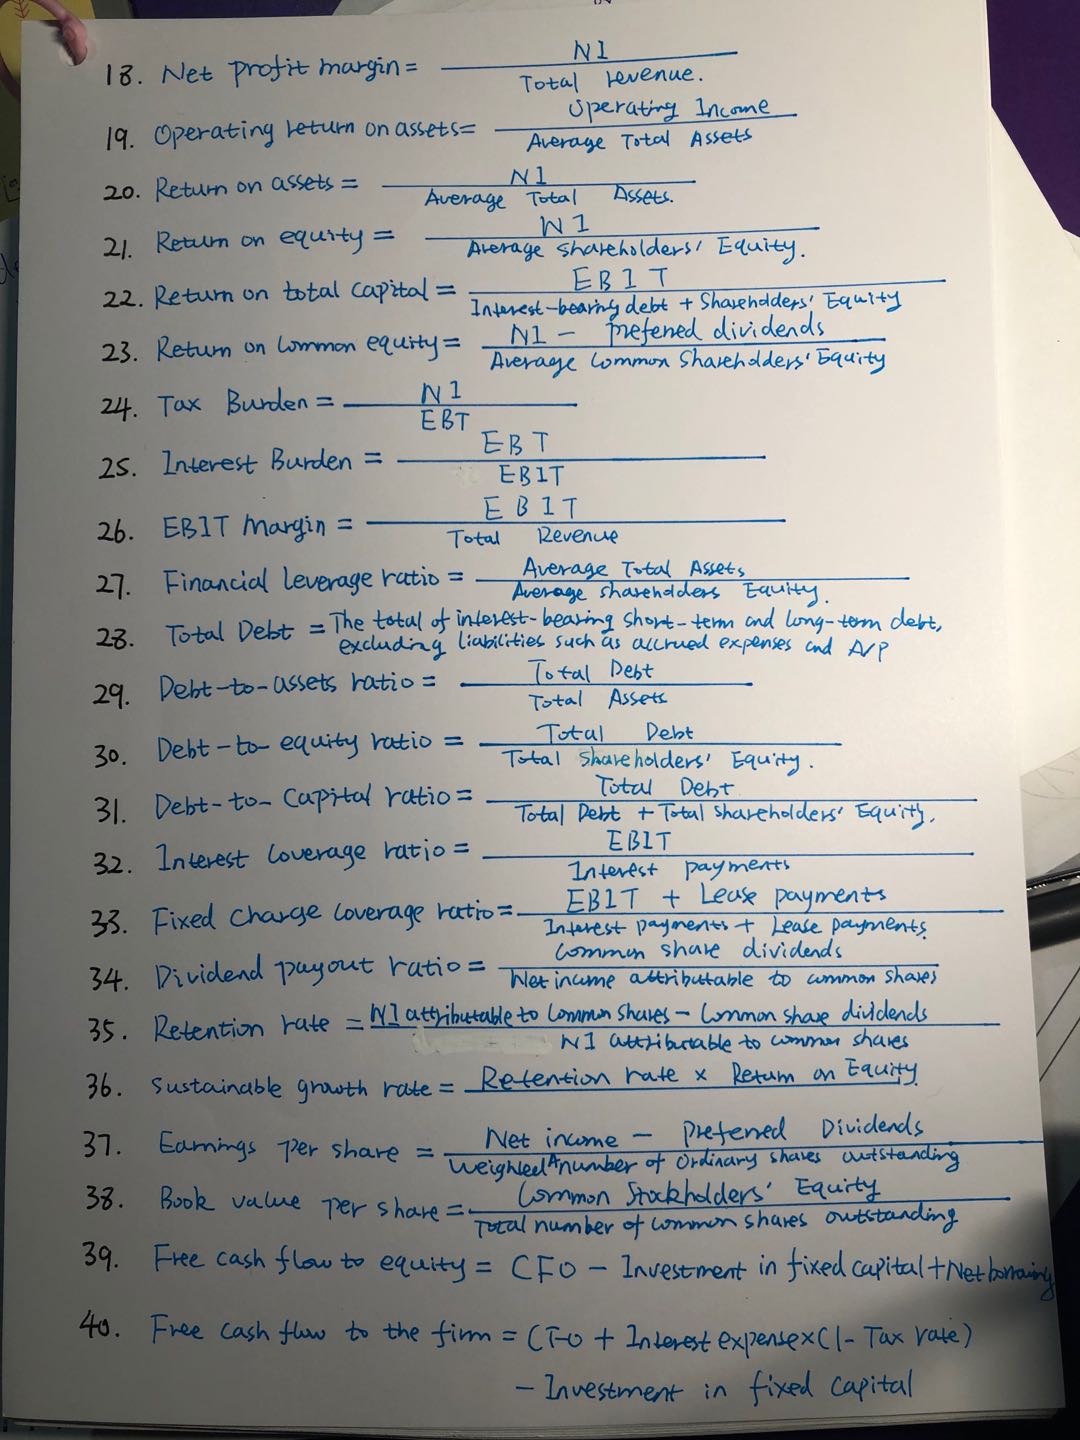 NI
18. Net profit margin =
Total revenue.
Operating Income
19. Operating return on assets=
Average Total Assets
NI
20. Return on assets =
Average Total Assets.
NI
21. Return on equity =
Average shareholders' Equity.
EBIT
22. Return on total capital =
Interest-bearing debt + Shareholders' Equity
NI - preferred dividends
23. Return on Common equity =
Average Common Shareholders' Equity
NI
24. Tax Burden =
EBT
EBT
25. Interest Burden =
EBIT
EBIT
26. EBIT Margin =
Total Revenue
Average Total Assets
27. Financial leverage ratio =
Average shareholders Equity.
28. Total Debt = The total of interest-bearing short-term and long-term debt,
excluding liabilities such as accrued expenses and A/P
Total Debt
29. Debt-to-assets ratio =
Total Assets
Total Debt
30. Debt-to-equity ratio =
Total Shareholders' Equity.
Total Debt
31. Debt-to-Capital ratio =
Total Debt + Total shareholders' Equity.
EBIT
32. Interest Coverage ratio =
Interest payments
EBIT + Lease payments
33. Fixed Charge Coverage ratio =
Interest payments + Lease payments
Common share dividends
34. Dividend payout ratio =
Net income attributable to common shares
NI attributable to Common shares - Common share dividends
35. Retention rate =
NI attributable to common shares
36. Sustainable growth rate = Retention rate × Return on Equity
Net income - preferred Dividends
37. Earnings per share =
Weighted A number of Ordinary shares outstanding
Common Stockholders' Equity
38. Book value per share =
Total number of common shares outstanding
39. Free cash flow to equity = CFO - Investment in fixed capital + Net borrowing
40. Free cash flow to the firm = CFO + Interest expense×(1- Tax rate)
- Investment in fixed capital